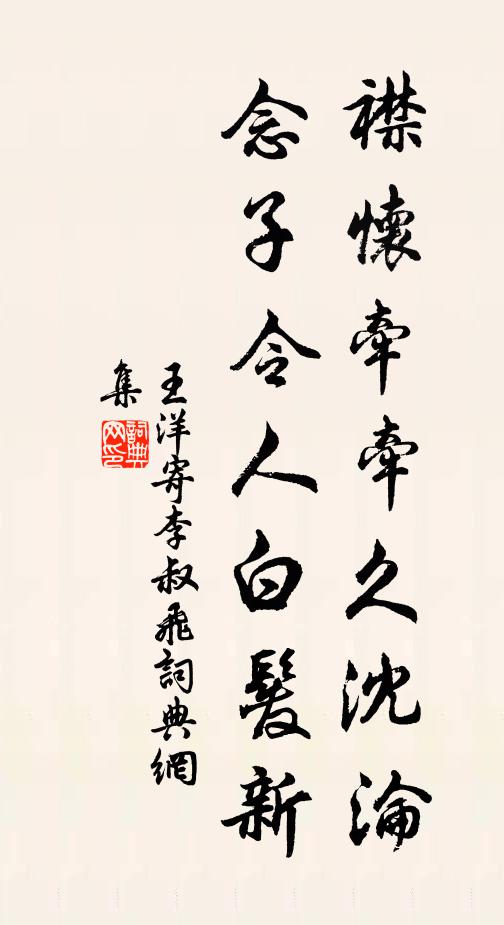 襟懷牽牽久沈淪
念子令人白髮新
王洋寄李叔飛詞典網
集
詞典
网印